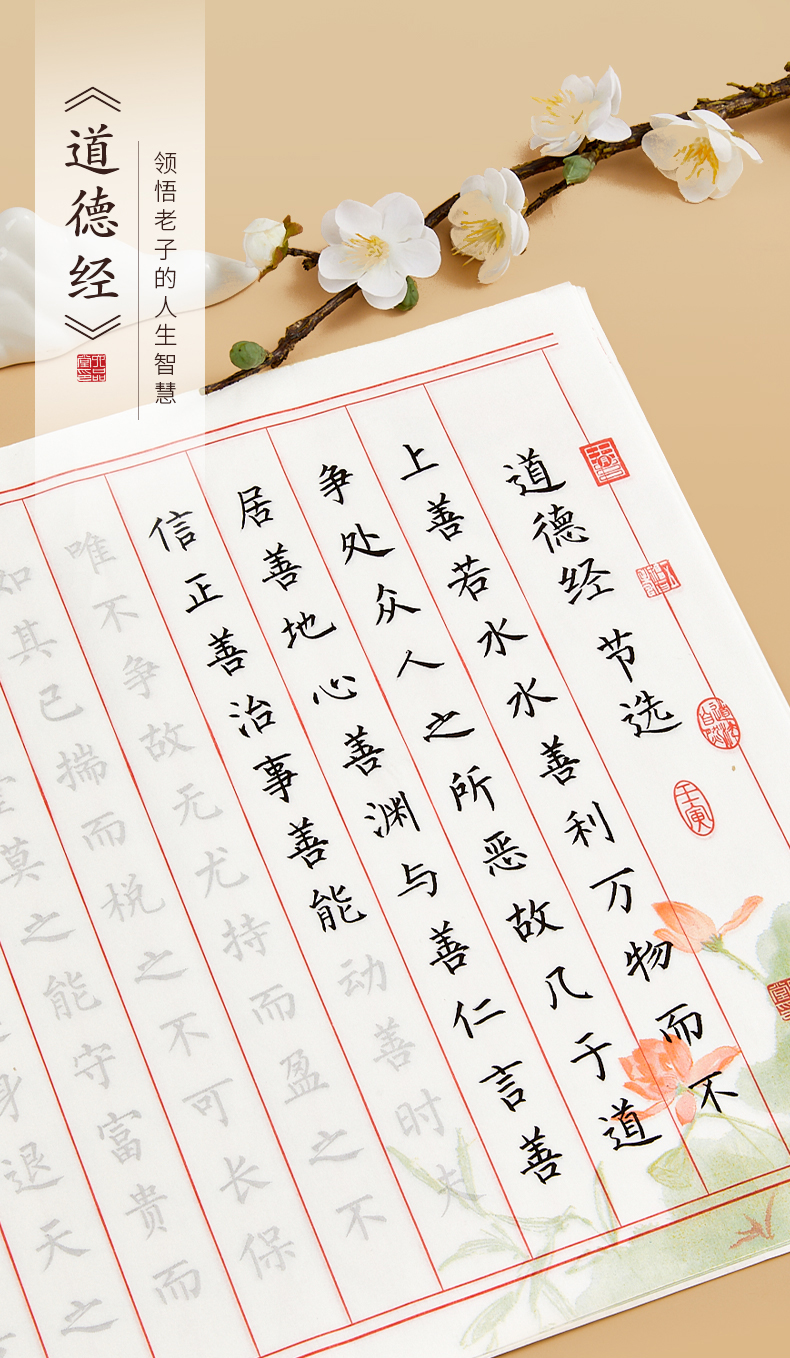 《道德经》
领悟老子的人生智慧
道德经 节选
壬寅
上善若水水善利万物而不
争处众人之所恶故几于道
居善地心善渊与善仁言善
信正善治事善能动善时夫
唯不争故无尤持而盈之不
如其已揣而棁之不可长保
莫之能守富贵而
身退天之